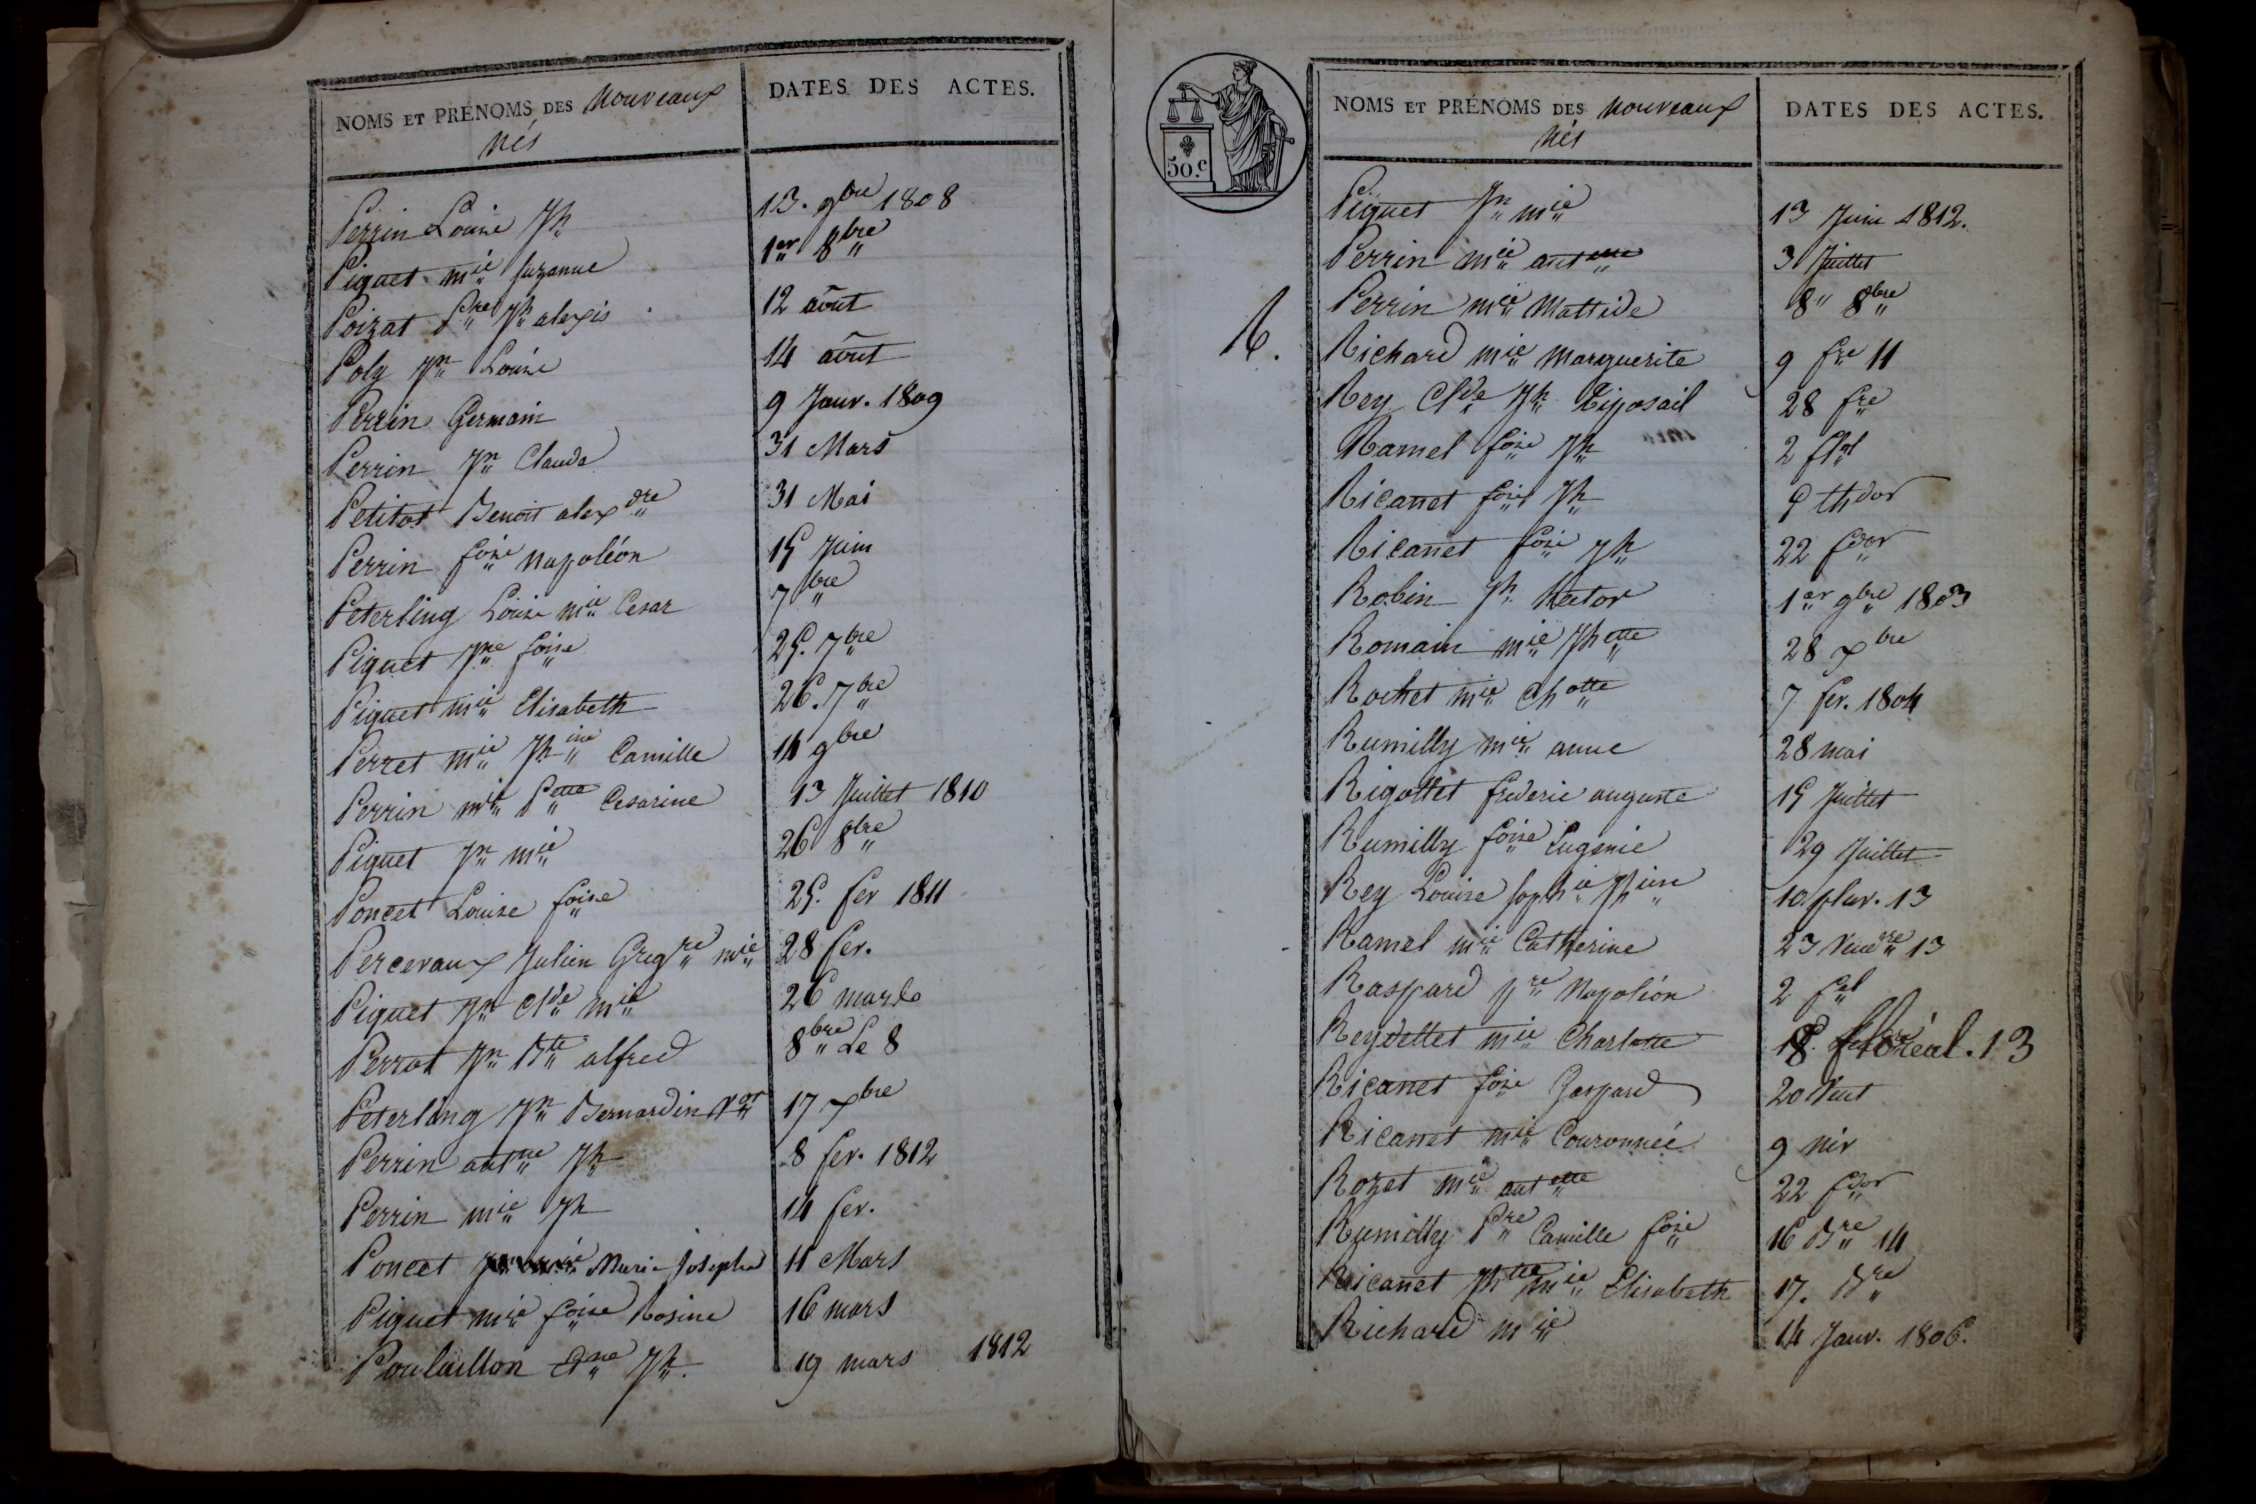 NOMS ET PRÉNOMS DES Nouveaux
nés
DATES DES ACTES.
Perrin Louise Jh 13. 9bre 1808
Piguet mie Suzanne 1er 8bre
Poizat Pre Jh alexis 12 août
Poly Jn Louise 14 août
Perrin Germain 9 Janv. 1809
Perrin Jn Claude 31 Mars
Petitot Benoit alexdre 31 Mai
Perrin foise Napoléon 15 Juin
Peterling Louise mie Cesar 7bre
Piguet Jne foise 25. 7bre
Piguet mie Elisabeth 26. 7bre
Perret mie Jhine Camille 14 9bre
Perrin mie Pette Cesarine 13 Juillet 1810
Piguet Jn mie 26 8bre
Poncet Louise foise 25. fer 1811
Percevaux Julien Gregre mie 28 fer.
Piguet Jn Clde mie 26 mars
Perrot Jn Bte alfred 8bre Le 8
Peterling Jn Bernardin 17 xbre
Perrin antne Jh 8 fer. 1812
Perrin mie Jh 14 fer.
Poncet Marie Josephe 11 Mars
Piguet mie foise Rosine 16 mars
Poulaillon Jh. 19 mars 1812
50.c
NOMS ET PRÉNOMS DES Nouveaux
nés
DATES DES ACTES.
Piguet Jn mie 13 Juin 1812.
Perrin mie antette 3 Juillet
Perrin mie Mattide 8 8bre
R.
Richard mie Marguerite 9 fre 11
Rey Clde Jh 28 fre
Ramel foise Jh 2 flal
Ricanet foise Jh 9 thdor
Ricanet foise Jh 22 fdor
Robin Jh Hector 1er 9bre 1803
Romain mie Jhette 28 xbre
Rochet mie Chotte 7 fer. 1804
Rumilly mie anne 28 mai
Rigottet frederic auguste 15 Juillet
Rumilly foise Eugenie 29 Juillet
Rey Louise sophie Jhine 10 pluv. 13
Ramel mie Catherine 23 Vendre 13
Raspard pre Napoléon 2 fal
Reydellet mie Charlotte 18 floréal. 13
Ricanet foise Gaspard 20 Vent
Ricanet mie Couronnée 9 niv
Rozet mie antette 22 fdor
Rumilly Pre Camille foise 16 Bre 14
Ricanet Jhtte mie Elisabeth 17. Bre
Richard mie 14 Janv. 1806.